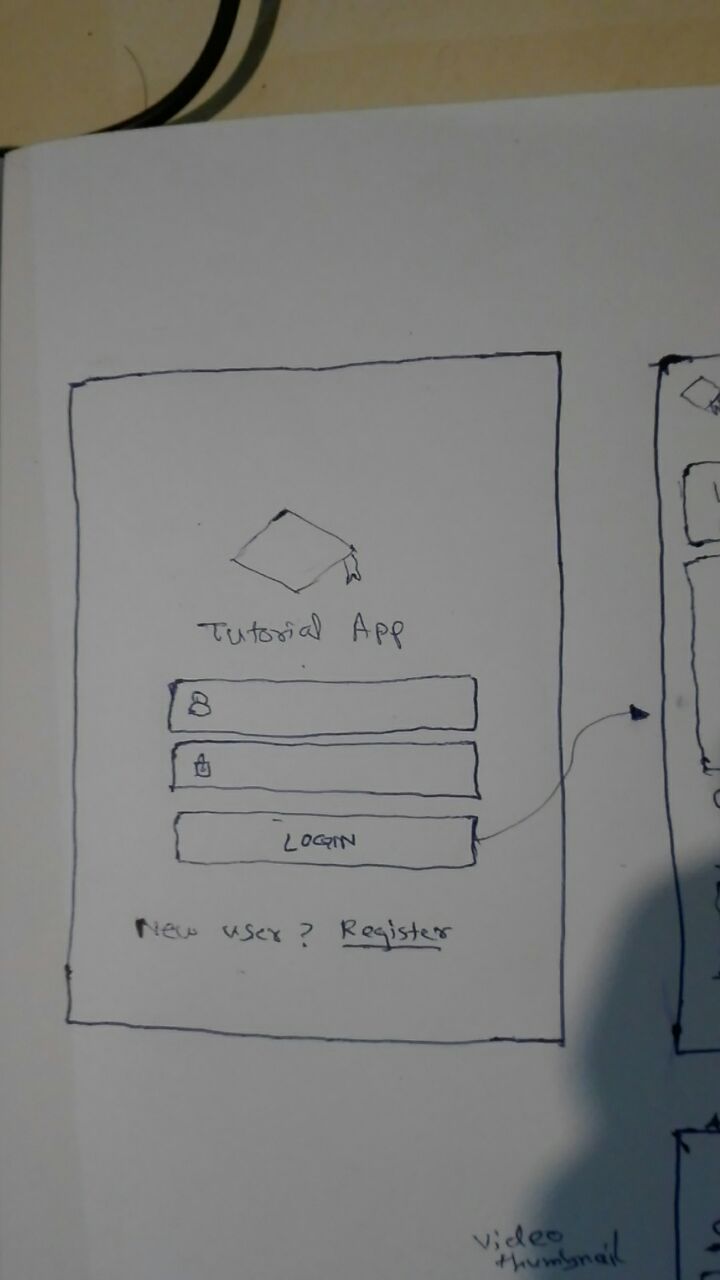 Tutorial App
LOGIN
New user? Register
video
thumbnail